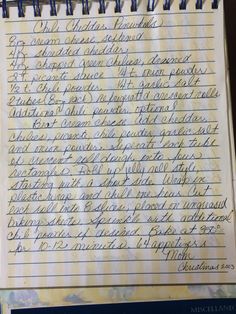 Chili Cheddar Pinwheels
8oz cream cheese softened
1/2 c shredded cheddar
4oz chopped green chilies, drained
2t picante sauce 1/4 t. onion powder
1/2 t. chili powder 1/4 t. garlic salt
2 tubes (8oz each) refrigerated crescent rolls
Additional chili powder optional
Beat cream cheese. Add cheddar,
chilies, picante, chile powder, garlic salt
and onion powder. Separate each tube
of crescent roll dough into four
rectangles. Roll up jelly roll style
starting with a short side. Wrap in
plastic wrap and chill one hour. Cut
each roll into 8 slices, placed on ungreased
baking sheets. Sprinkle with additional
chile powder if desired. Bake at 350°
for 10-12 minutes. 64 appetizers
Mom
Christmas 2003
MISCELLANE